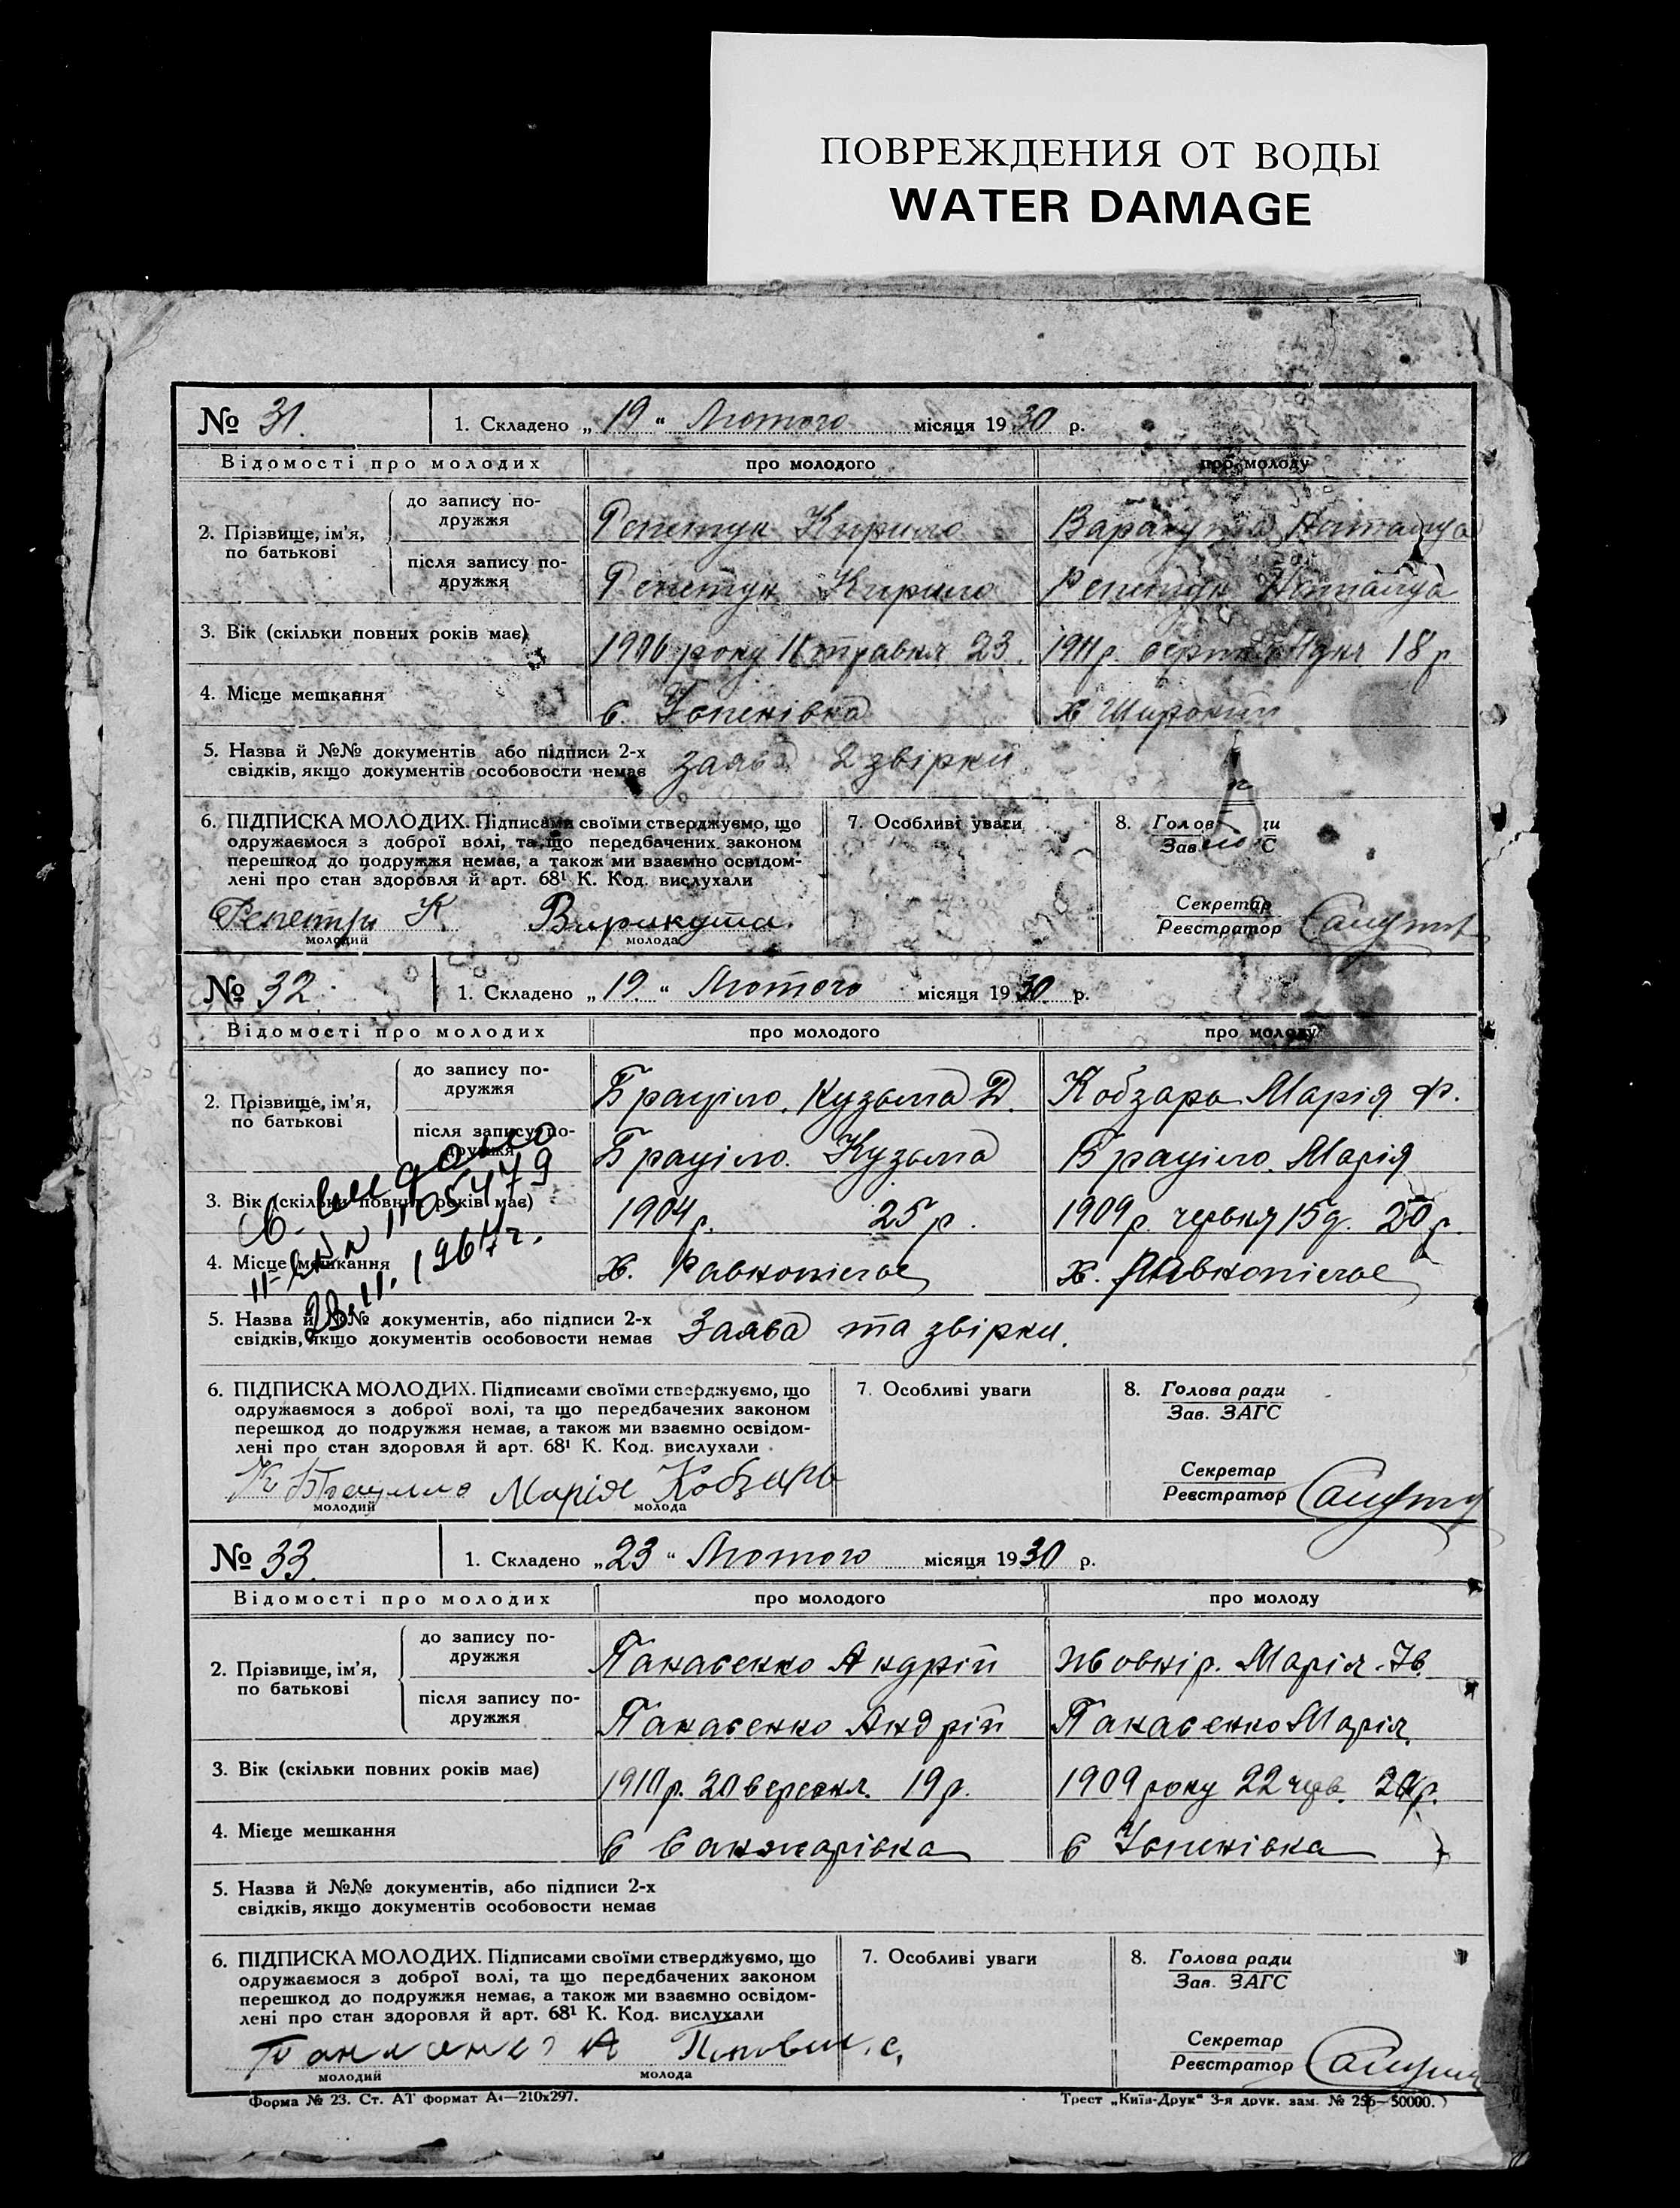 ПОВРЕЖДЕНИЯ ОТ ВОДЫ
WATER DAMAGE
№ 31. 1. Складено „19“ Лютого місяця 1930 р.
Відомості про молодих про молодого про молоду
2. Прізвище, ім'я, по батькові
до запису подружжя Репетун Кирило Варакута Наталя
після запису подружжя Репетун Кирило Репетун Наталя
3. Вік (скільки повних років має) 1906 року травня 23. 1911 р. 18 р
4. Місце мешкання с. Успенівка х Широкий
5. Назва й №№ документів або підписи 2-х
свідків, якщо документів особовости немає заява 2 звірки
6. ПІДПИСКА МОЛОДИХ. Підписами своїми стверджуємо, що
одружаємося з доброї волі, та що передбачених законом
перешкод до подружжя немає, а також ми взаємно освідом-
лені про стан здоровля й арт. 68¹ К. Код. вислухали
7. Особливі уваги
8. Голов ди
Зав С
Секретар
Реєстратор
молодий молода
№ 32. 1. Складено „19.“ Лютого місяця 1930 р.
Відомості про молодих про молодого про молоду
2. Прізвище, ім'я, по батькові
до запису подружжя Браціло. Кузьма Д. Кобзарь Марія Ф.
після запису подружжя Браціло. Кузьма Браціло. Марія
3. Вік (скільки повних років має) 1904 р. 25 р. 1909 р. червня 15 д. 20 р.
4. Місце мешкання х. Равнопілля х. Равнопілля
5. Назва й №№ документів, або підписи 2-х
свідків, якщо документів особовости немає Заява та звірки.
6. ПІДПИСКА МОЛОДИХ. Підписами своїми стверджуємо, що
одружаємося з доброї волі, та що передбачених законом
перешкод до подружжя немає, а також ми взаємно освідом-
лені про стан здоровля й арт. 68¹ К. Код. вислухали
7. Особливі уваги
8. Голова ради
Зав. ЗАГС
Секретар
Реєстратор
Марія Кобзарь
молодий молода
№ 33. 1. Складено „23“ Лютого місяця 1930 р.
Відомості про молодих про молодого про молоду
2. Прізвище, ім'я, по батькові
до запису подружжя Панасенко Андрій Жовнір. Марія
після запису подружжя Панасенко Андрій Панасенко Марія
3. Вік (скільки повних років має) 1910 р. 20 вересня. 19 р. 1909 року 22 черв. 20 р.
4. Місце мешкання с с Успенівка
5. Назва й №№ документів, або підписи 2-х
свідків, якщо документів особовости немає
6. ПІДПИСКА МОЛОДИХ. Підписами своїми стверджуємо, що
одружаємося з доброї волі, та що передбачених законом
перешкод до подружжя немає, а також ми взаємно освідом-
лені про стан здоровля й арт. 68¹ К. Код. вислухали
7. Особливі уваги
8. Голова ради
Зав. ЗАГС
Секретар
Реєстратор
молодий молода
Форма № 23. Ст. АТ формат А4—210х297. Трест „Київ-Друк“ 3-я друк. зам. № 256—50000.